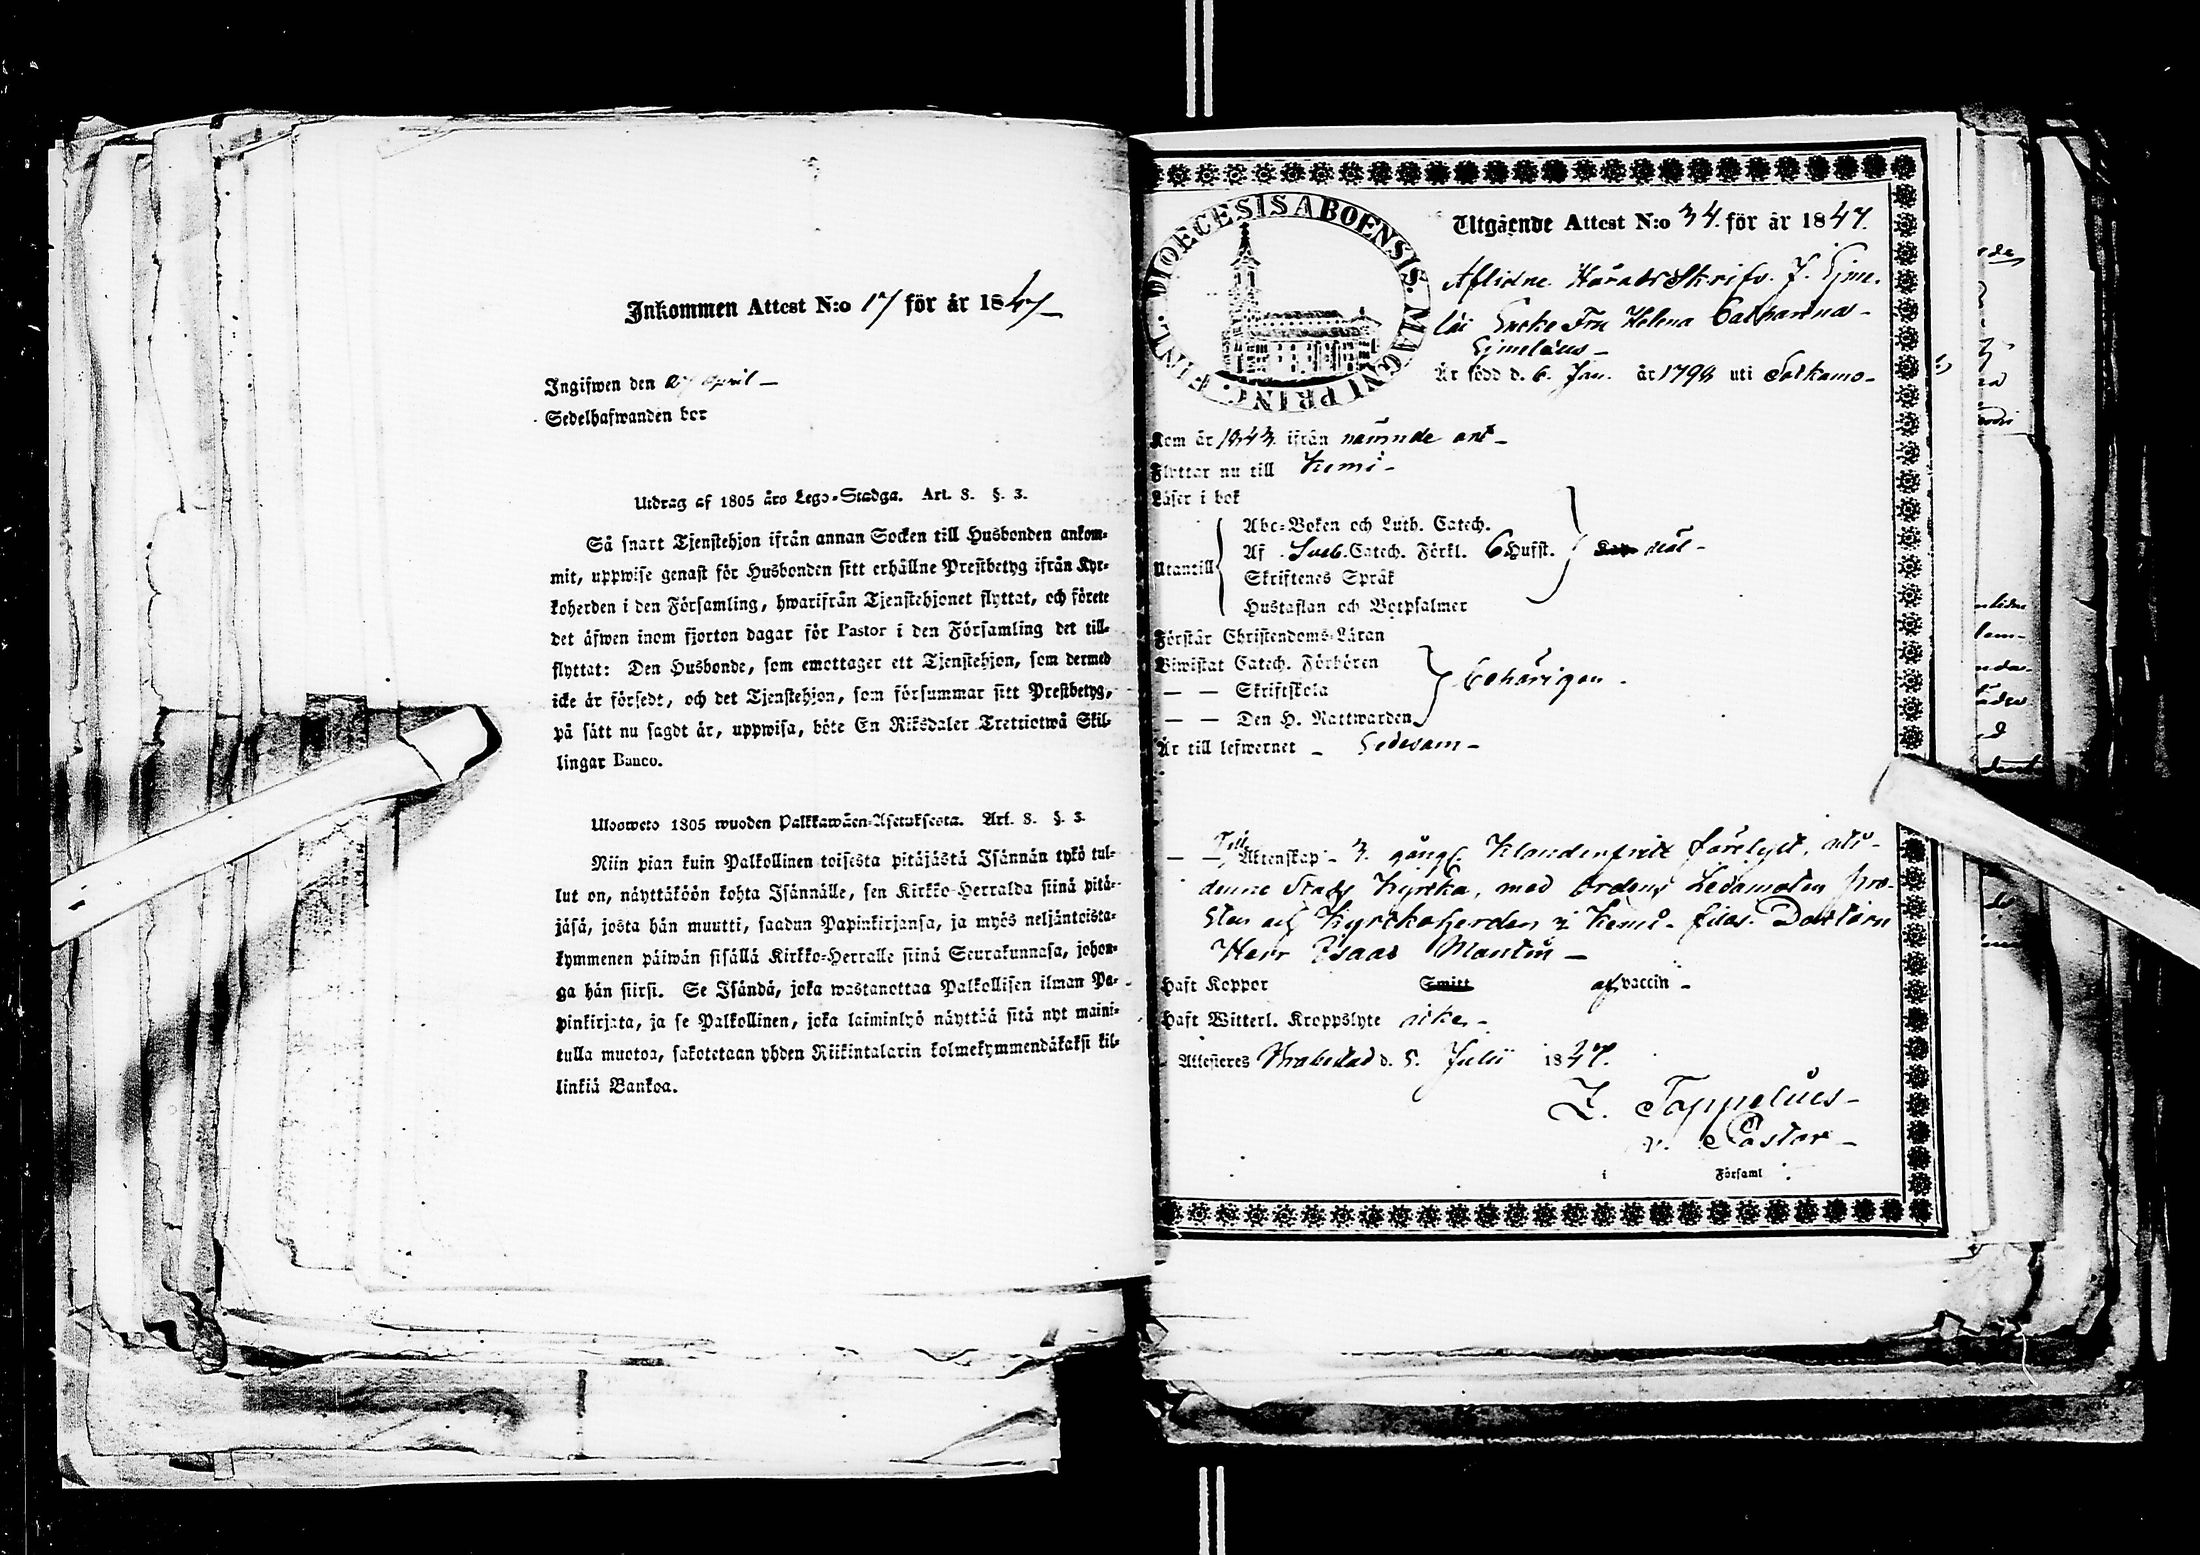 Inkommen Attest N:o 17 för år 1847
Ingifwen den 27 April
Sedelhafwanden bor
Utdrag af 1805 års Lego-Stadga. Art. 8. §. 3.
Så snart Tjenstehjon ifrån annan Socken till Husbonden ankom-
mit, uppwise genast för Husbonden sitt erhållne Prestbetyg ifrån Kyr-
koherden i den Församling, hwarifrån Tjenstehjonet flyttat, och förete
det äfwen inom fjorton dagar för Pastor i den Församling det till-
flyttat: Den Husbonde, som emottager ett Tjenstehjon, som dermed
icke är försedt, och det Tjenstehjon, som försummar sitt Prestbetyg,
på sätt nu sagdt är, uppwisa, böte En Riksdaler Trettiotwå Skil-
lingar Banco.
Ulosweto 1805 wuoden Palkkawäen-Asetuksesta. Art. 8. §. 3.
Niin pian kuin Palkollinen toisesta pitäjästä Isännän tykö tul-
lut on, näyttäköön kohta Isännälle, sen Kirkko-Herralda siinä pitä-
jäsä, josta hän muutti, saadun Papinkirjansa, ja myös neljäntoista-
kymmenen päiwän sisällä Kirkko-Herralle siinä Seurakunnasa, johon-
ga hän siirsi. Se Isändä, joka wastanottaa Palkollisen ilman Pa-
pinkirjata, ja se Palkollinen, joka laiminlyö näyttää sitä nyt maini-
tulla muotoa, sakotetaan yhden Riikintalarin kolmekymmendäkaksi kil-
linkiä Bankoa.
DIOECESIS ABOENSIS. MAGNI PRINC. FINL.
Utgående Attest N:o 34. för år 1847.
Aflidne Härads Skrifv. J. Ejme-
læi Encke Fru Helena Catharina
Ejmelæus
Är född d. 6. Jan. år 1798 uti Sotkamo
Kom år 1843 ifrån nämnde ort
Flyttar nu till Kemi
Läser i bok
Abc-Boken och Luth. Catech.
Utantill Af Sveb. Catech. Förkl. 6 Hufst. wäl
Skriftenes Språk
Hustaflan och Botpsalmer
Förstår Christendoms-Läran
Biwistat Catech. Förhören
— — Skriftskola behörigen
— — Den H. Nattwarden
Är till lefwernet Sedesam
— — Till Äktenskap 3 gång. Klanderfritt förelyst, uti
denne Stads Kyrka, med Ordens Ledamoten Pro-
sten och Kyrkoherden i Kemi filos. Doctorn
Herr Isaac Montin
Haft Koppor Smitt af vaccin
Haft Witterl. Kroppslyte icke
Attesteres Brahestad d. 5. Julii 1847.
Z. Toppelius
v. Pastor
i Församl